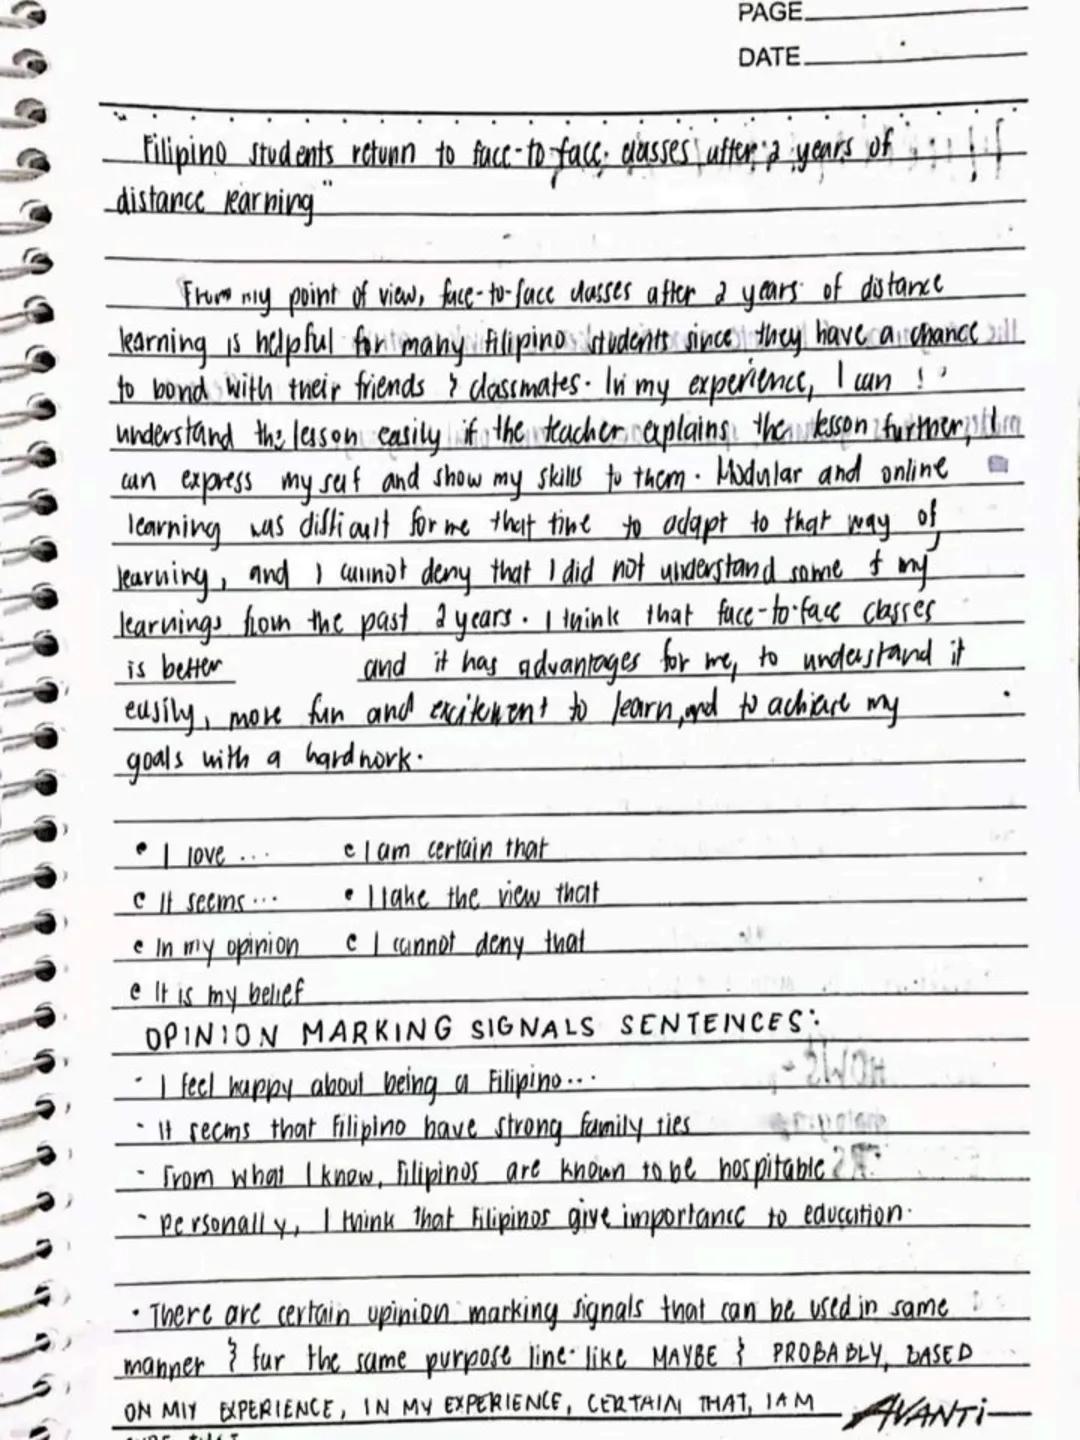 PAGE
DATE
Filipino students return to face-to-face classes after 2 years of
distance learning"
From my point of view, face-to-face classes after 2 years of distance
learning is helpful for many filipino students since they have a chance
to bond with their friends & classmates. In my experience, I can
understand the lesson easily if the teacher explains the lesson further, I
can express my self and show my skills to them. Modular and online
learning was difficult for me that time to adapt to that way of
learning, and I cannot deny that I did not understand some of my
learnings from the past 2 years. I think that face-to-face classes
is better and it has advantages for me, to understand it
easily, more fun and excitement to learn, and to achieve my
goals with a hardwork.
• I love ... • I am certain that
• It seems... • I take the view that
• In my opinion • I cannot deny that
• It is my belief
OPINION MARKING SIGNALS SENTENCES:
- I feel happy about being a Filipino...
- It seems that Filipino have strong family ties
- From what I know, Filipinos are known to be hospitable
- personally, I think that Filipinos give importance to education.
• There are certain opinion marking signals that can be used in same
manner & for the same purpose line- like MAYBE & PROBABLY, BASED
ON MY EXPERIENCE, IN MY EXPERIENCE, CERTAIN THAT, I AM
AVANTi